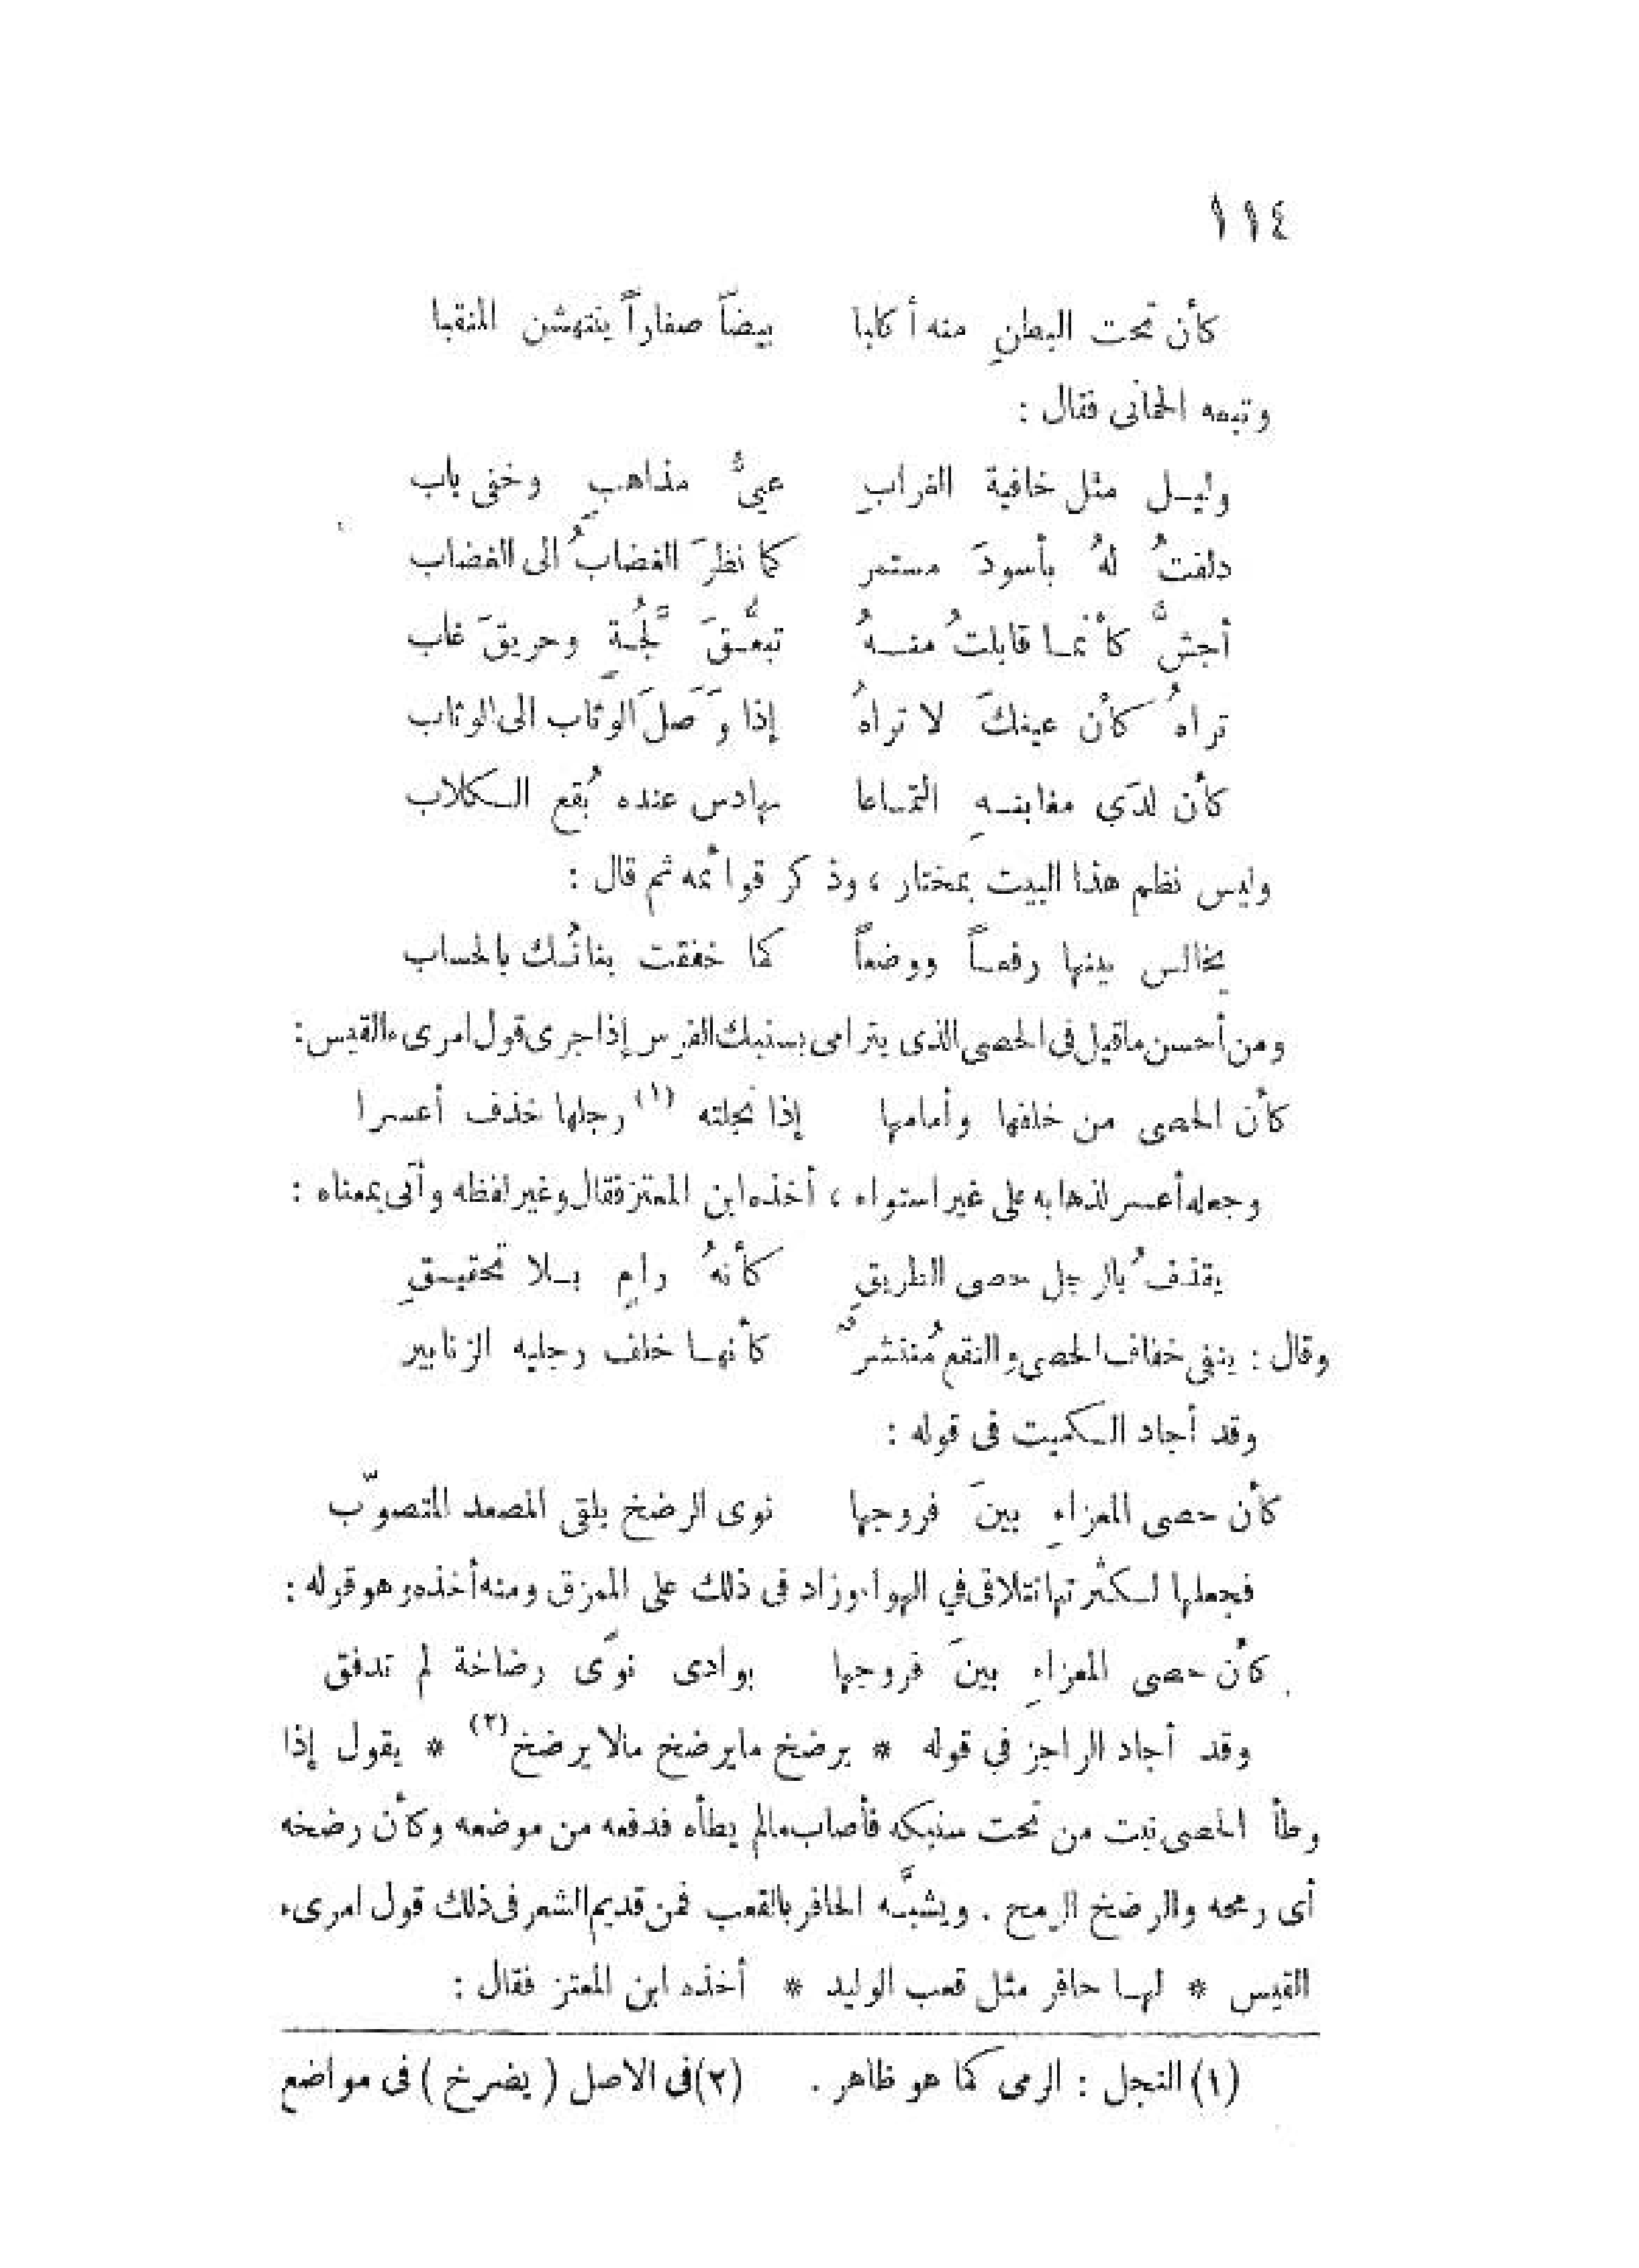 ١١٤
كأن تحت البطنِ منه أكلبا بيضاً صغاراً ينتهشن المنقبا
وتبعه الحمانى فقال :
وليـل مثل خافية الغرابِ عيىُّ مذاهبٍ وخفى باب
دلفتُ لهُ بأسودَ مستمر كما نظرَ الغضابُ الى الغضاب
أجشُّ كأنمـا قابلتُ منـهُ تبعُّـقَ لُجَّـةٍ وحريقَ غاب
تراهُ كأن عينكَ لا تراهُ إذا وَصلَ الوثاب الى الوثاب
كأن لدَى مغابنـهِ التمـاعا يهادس عنده بُقع الـكلاب
وليس نظم هذا البيت بمختار ، وذكر قوائمه ثم قال :
يخالس بينها رفعـاً ووضعاً كما خفقت بنانُـك بالحساب
ومن أحسن ماقيل فى الحصى الذى يترامى بسنبك الفرس إذا جرى قول امرىء القيس :
كأن الحصى من خلفها وأمامها إذا نجلته (١) رجلها خذف أعسرا
وجعله أعسر لذهابه على غير استواء ، أخذه ابن المعتز فقال وغير لفظه وأتى بمعناه :
يقذفُ بالرجل حصى الطريقِ كأنهُ رامٍ بـلا تحقيـقِ
وقال : ينفى خفاف الحصى والنقع مُنتشرٌ كأنهـا خلف رجليه الزنابير
وقد أجاد الـكميت فى قوله :
كأن حصى المعزاءِ بينَ فروجها نوى الرضخ يلقى المصعد المتصوّب
فجعلها لـكثرتها تتلاقى في الهواء وزاد فى ذلك على الممزق ومنه أخذه وهو قوله :
كأن حصى المعزاءِ بينَ فروجها بوادى نوَى رضاخة لم تدفق
وقد أجاد الراجز فى قوله * يرضخ مايرضخ مالا يرضخ (٢) * يقول إذا
وطأ الحصى نبت من تحت سنبكه فأصاب مالم يطأه فدفعه من موضعه وكأن رضخه
أى رمحه والرضخ الرمح . ويشبَّـه الحافر بالقعب فمن قديم الشعر فى ذلك قول امرىء
القيس * لهـا حافر مثل قعب الوليد * أخذه ابن المعتز فقال :
(١) النجل : الرمى كما هو ظاهر . (٢) فى الاصل ( يضرخ ) فى مواضع